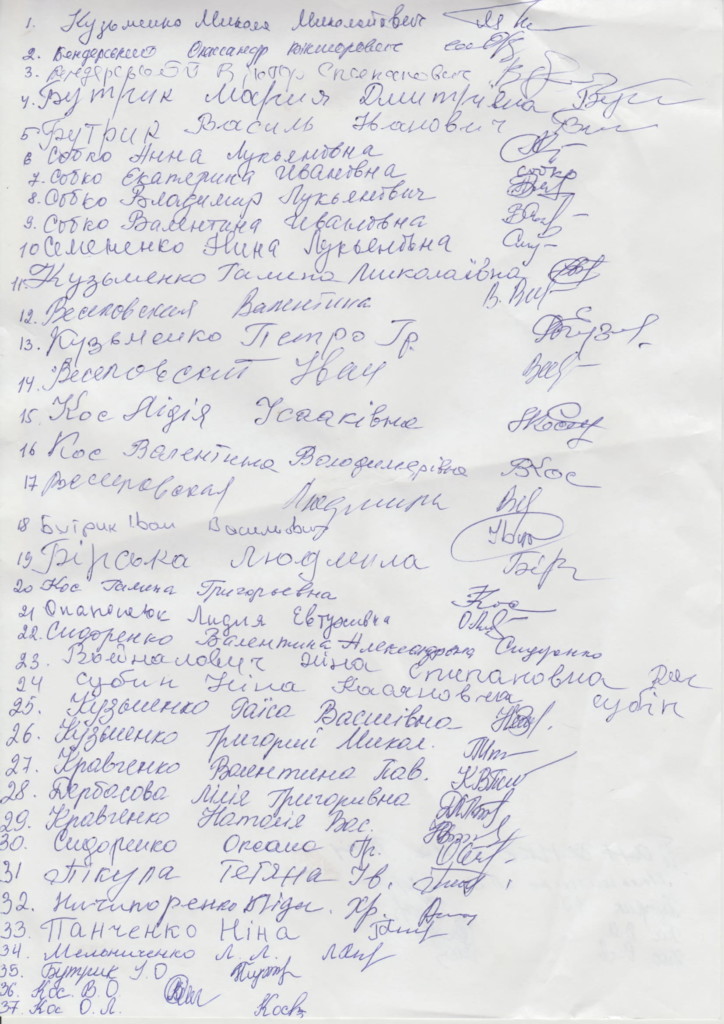 1. Кузьменко Микола Миколайович
2. Бендерський Олександр Вікторович
3. Бендерський Віктор Степанович
4. Бутрик Мария Дмитрівна
5 Бутрик Василь Іванович
6 Собко Анна Лукьянівна
7. Собко Екатерина Ивановна собко
8. Собко Владимир Лукьянович
9. Собко Валентина Ивановна
10 Семененко Нина Лукьеновна
11. Кузьменко Галина Миколаївна
12. Веселовская Валентина
13. Кузьменко Петро Гр.
14. Веселовский Иван
15. Кос Лідія Ісааківна
16 Кос Валентина Володимирівна ВКос
17 Веселовская Людмила
18 Бутрик Іван Васильович
19. Бірська Людмила Бір
20 Кос Галина Григорьевна
21 Опанасюк Лидия Евтухивна
22. Сидоренко Валентина Александровна Сидоренко
23. Войналович Ніна Степановна
24 Субин Ніна Субін
25. Кузьменко Раїса Василівна
26. Кузьменко Григорий Микол.
27. Кравченко Валентина Пав.
28. Дербасова Лілія Григоривна
29. Кравченко Наталія Вас.
30. Сидоренко Оксана Гр.
31 Пікула Тетяна Ів.
32. Ничипоренко Лідія Хр.
33. Панченко Ніна
34. Мельниченко Л. Л.
35. Бутрик І.О
36. Кос В.О
37. Кос О.Л.